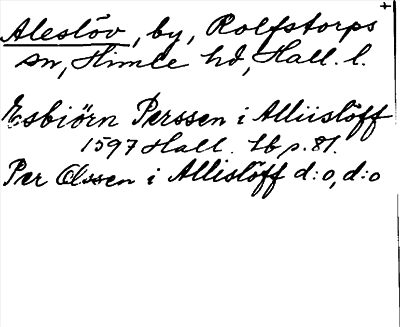 Aleslöv, by, Rolfstorps +
sn, Himle hd, Hall. l.
Esbiörn Perssen i Alliislöff
1597 Hall. lb p. 81.
Per Olssen i Allislöff d:o, d:o